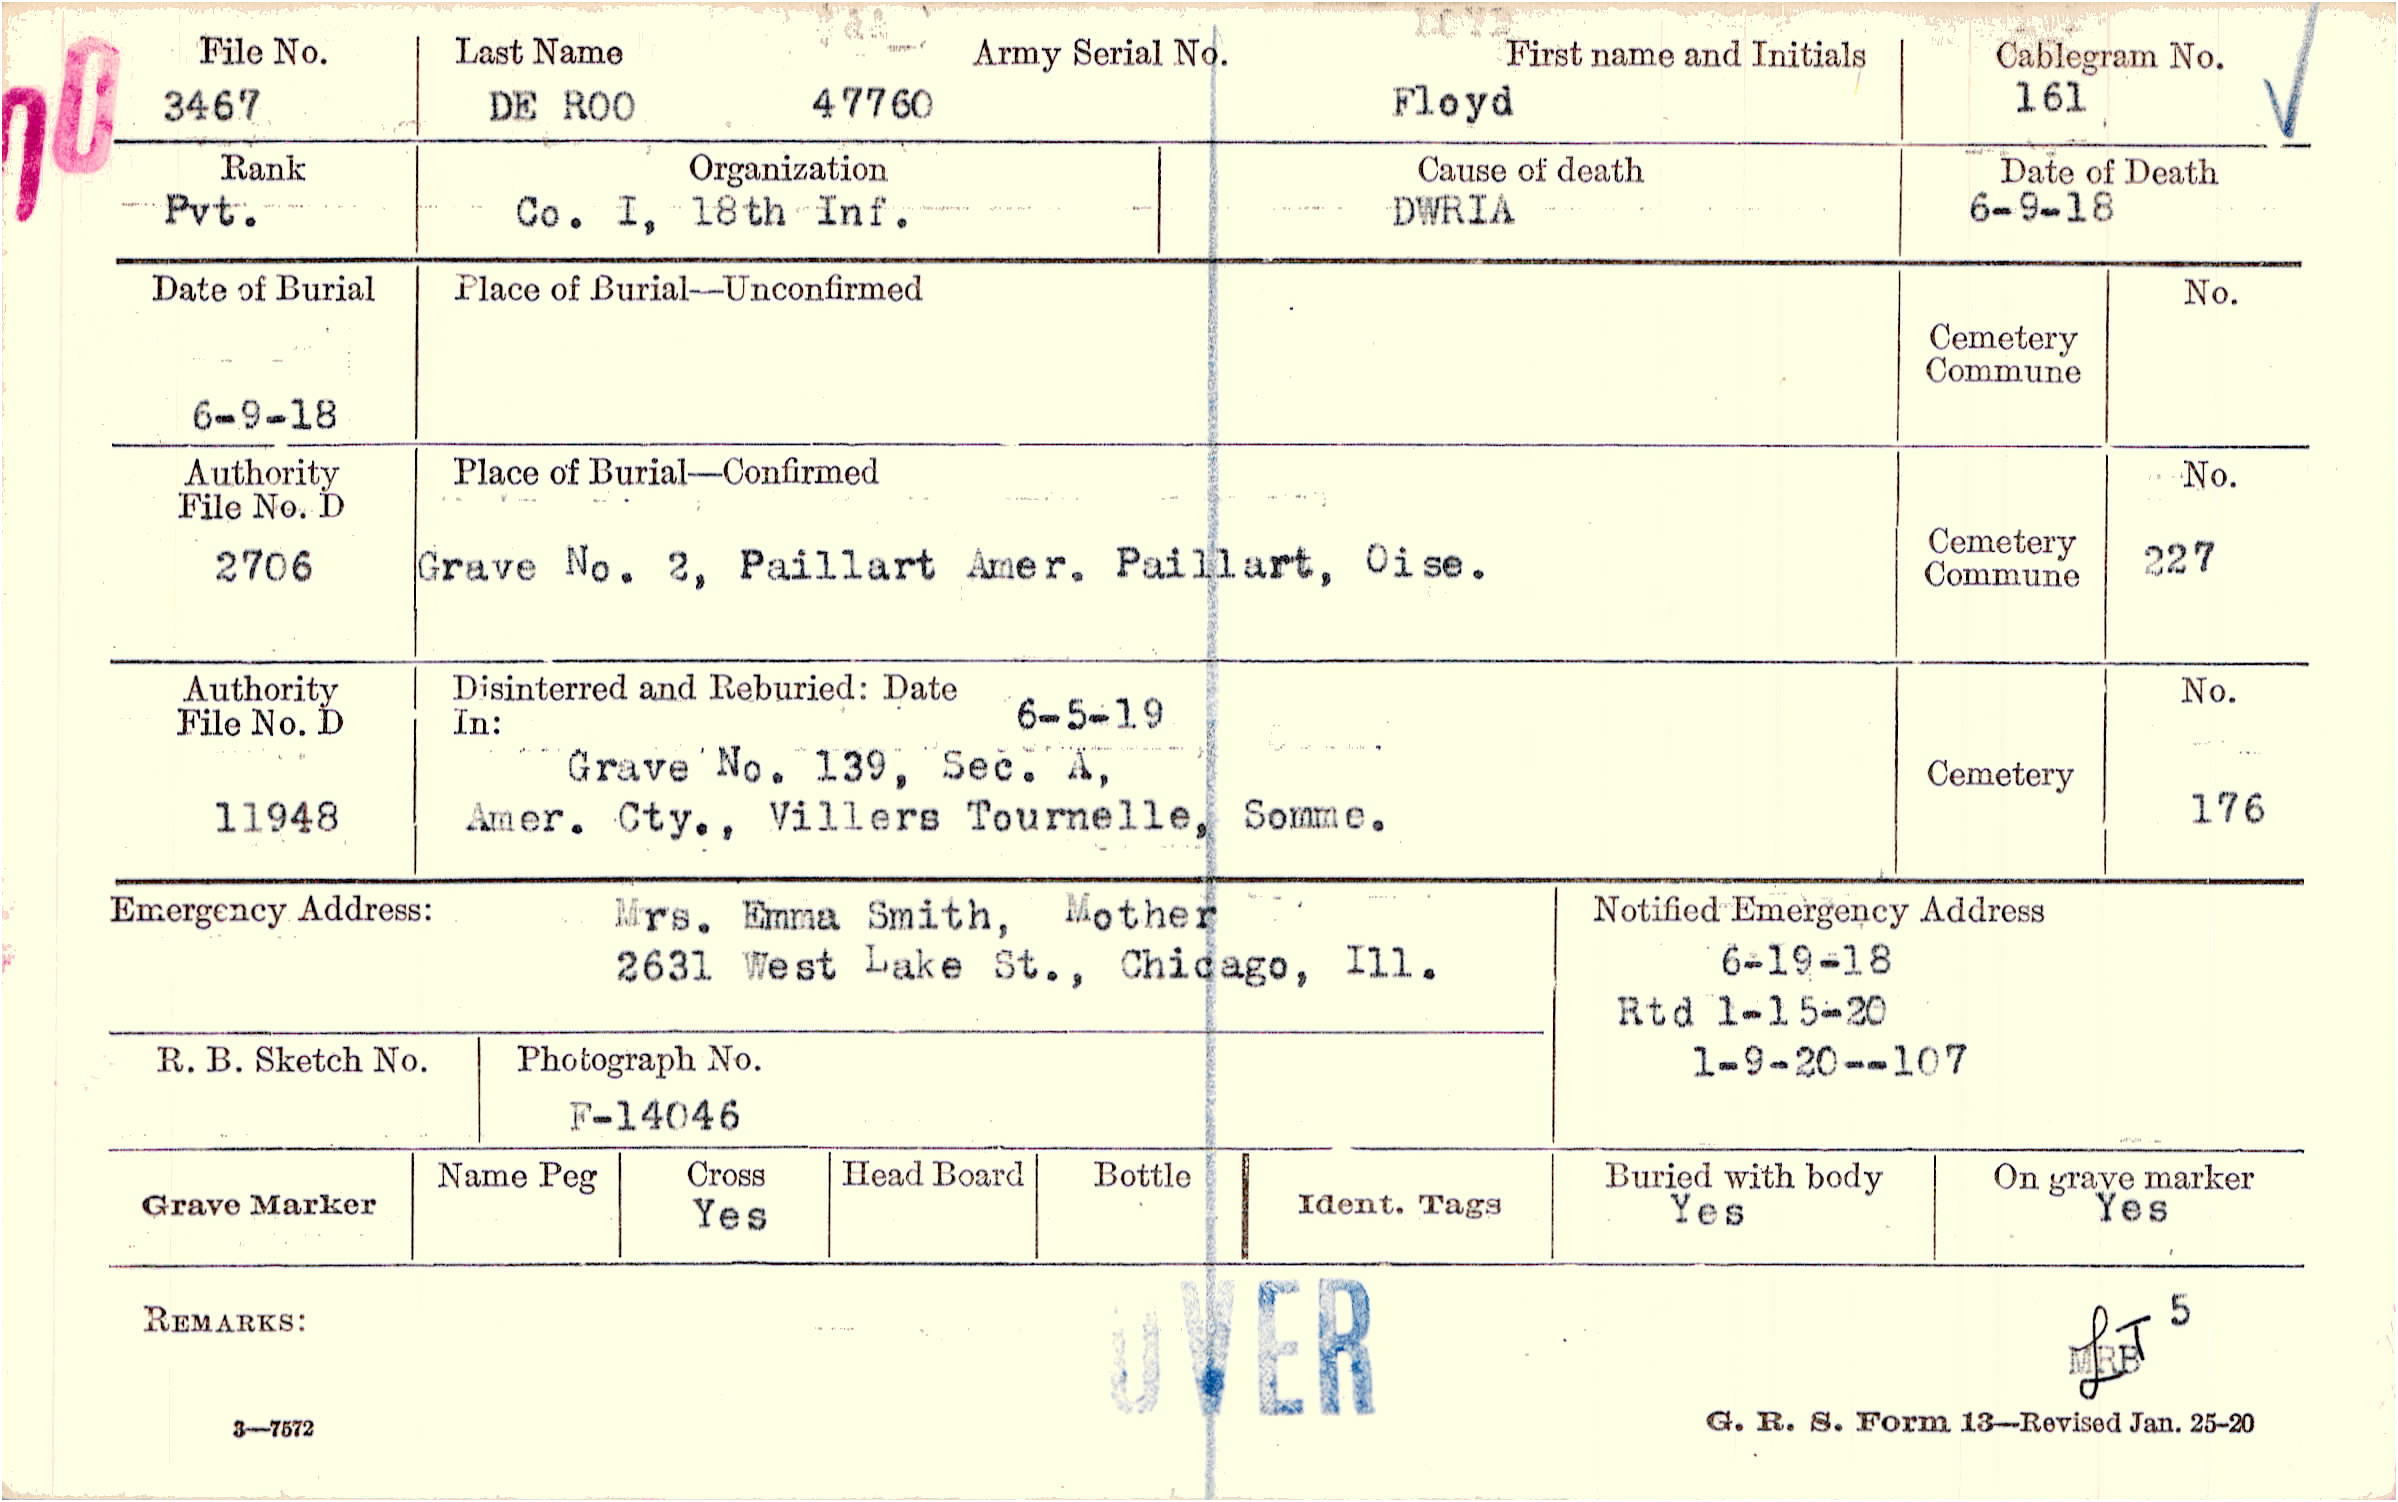 File No. Last Name Army Serial No. First name and Initials Cablegram No.
3467 DE ROO 47760 Floyd 161
Rank Organization Cause of death Date of Death
Pvt. Co. I, 18th Inf. DWRIA 6-9-18
Date of Burial Place of Burial—Unconfirmed No.
Cemetery
Commune
6-9-18
Authority Place of Burial—Confirmed No.
File No. D
2706 Grave No. 2, Paillart Amer. Paillart, Oise. Cemetery 227
Commune
Authority Disinterred and Reburied: Date 6-5-19 No.
File No. D In:
Grave No. 139, Sec. A, Cemetery
11948 Amer. Cty., Villers Tournelle, Somme. 176
Emergency Address: Mrs. Emma Smith, Mother Notified Emergency Address
2631 West Lake St., Chicago, Ill. 6-19-18
Rtd 1-15-20
R. B. Sketch No. Photograph No. 1-9-20--107
F-14046
Name Peg Cross Head Board Bottle Buried with body On grave marker
Grave Marker Yes Ident. Tags Yes Yes
REMARKS: OVER 5
MRB
3—7572 G. R. S. Form 13—Revised Jan. 25-20